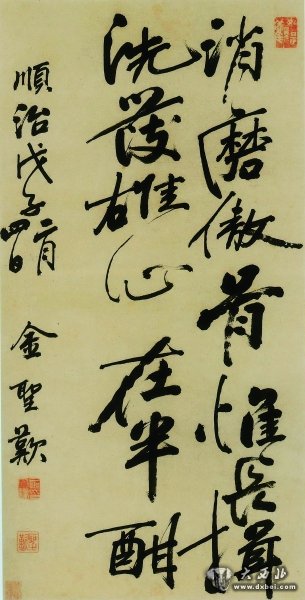 消磨傲骨惟長揖
洗發雄心在半酣
順治戊子二月四日 金聖歎
大西北
www.dxbei.com